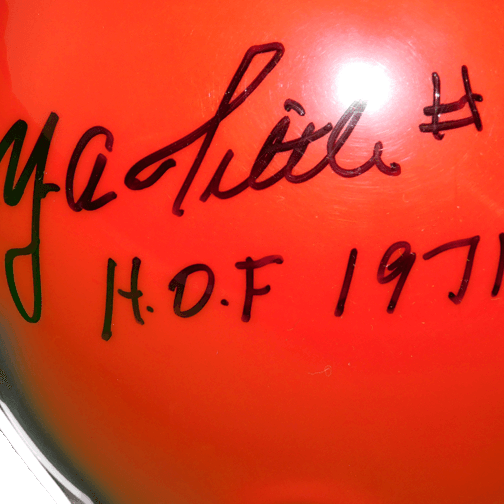 Ya Tittle #
H.O.F 1971